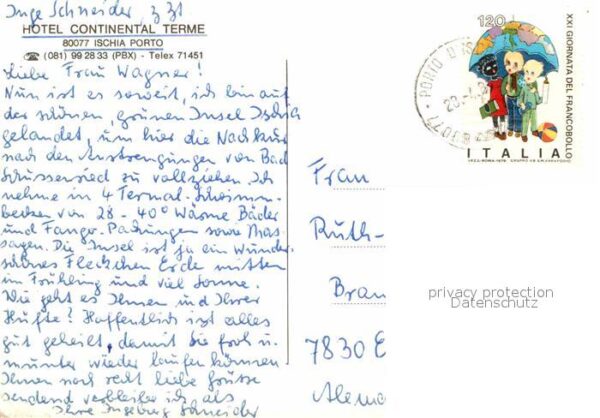 Inge Schneider, z Zt
HOTEL CONTINENTAL TERME
80077 ISCHIA PORTO
☎ (081) 99 28 33 (PBX) - Telex 71451
Liebe Frau Wagner!
Nun ist es soweit, ich bin auf
der schönen, grünen Insel Ischia
gelandet, um hier die Nachkur
nach den Anstrengungen von Bad
Schussenried zu vollziehen. Ich
nehme in 4 Termal-Schwimm-
becken von 28 - 40° Wärme Bäder
und Fango-Packungen sowie Mas-
sagen. Die Insel ist ja ein wunder-
schönes Fleckchen Erde mitten
im Frühling und viel Sonne.
Wie geht es Ihnen und Ihrer
Hüfte? Hoffentlich ist alles
gut geheilt, damit Sie froh u.
munter wieder laufen können
Ihnen noch recht liebe Grüsse
sendend verbleibe ich als
Ihre Ingeburg Schneider
120
XXI GIORNATA DEL FRANCOBOLLO
ITALIA
PORTO D'IS
80077
Frau
Ruth-
Bran
7830 E
Alema
privacy protection
Datenschutz